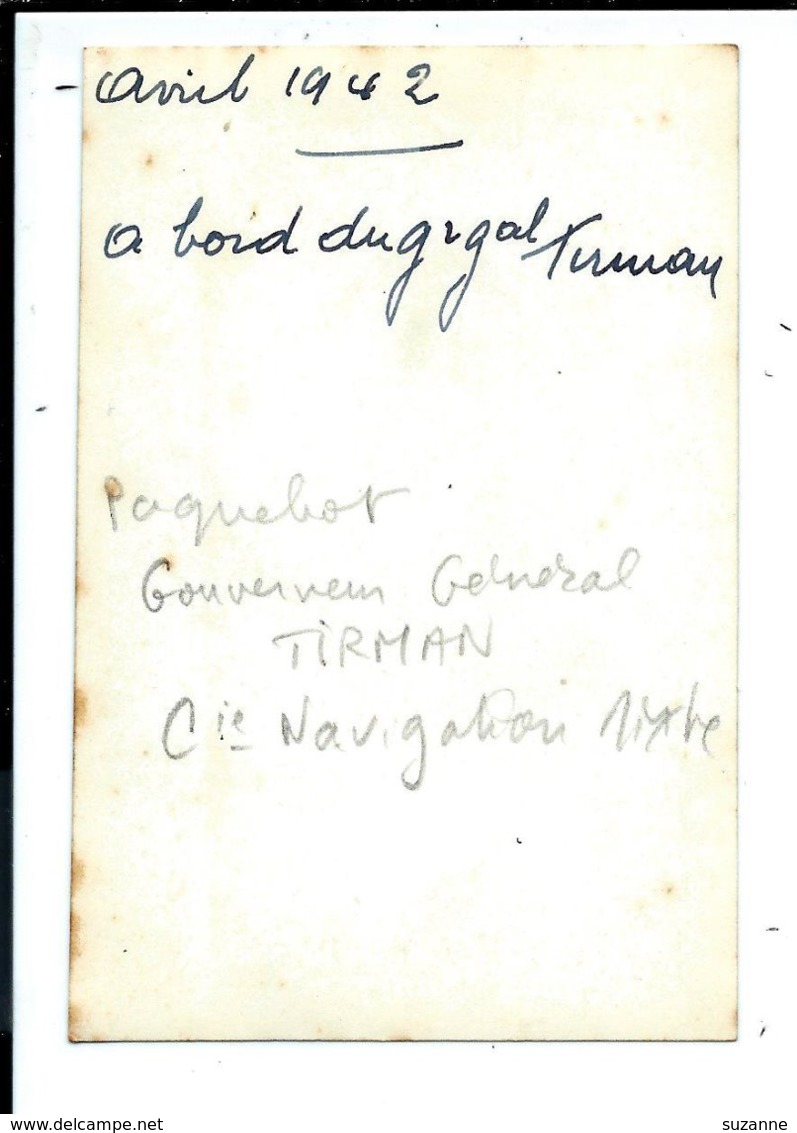 Avril 1942
A bord du gr gal Tirman
Paquebot
Gouverneur Général
TIRMAN
Cie Navigation Mixte
suzanne